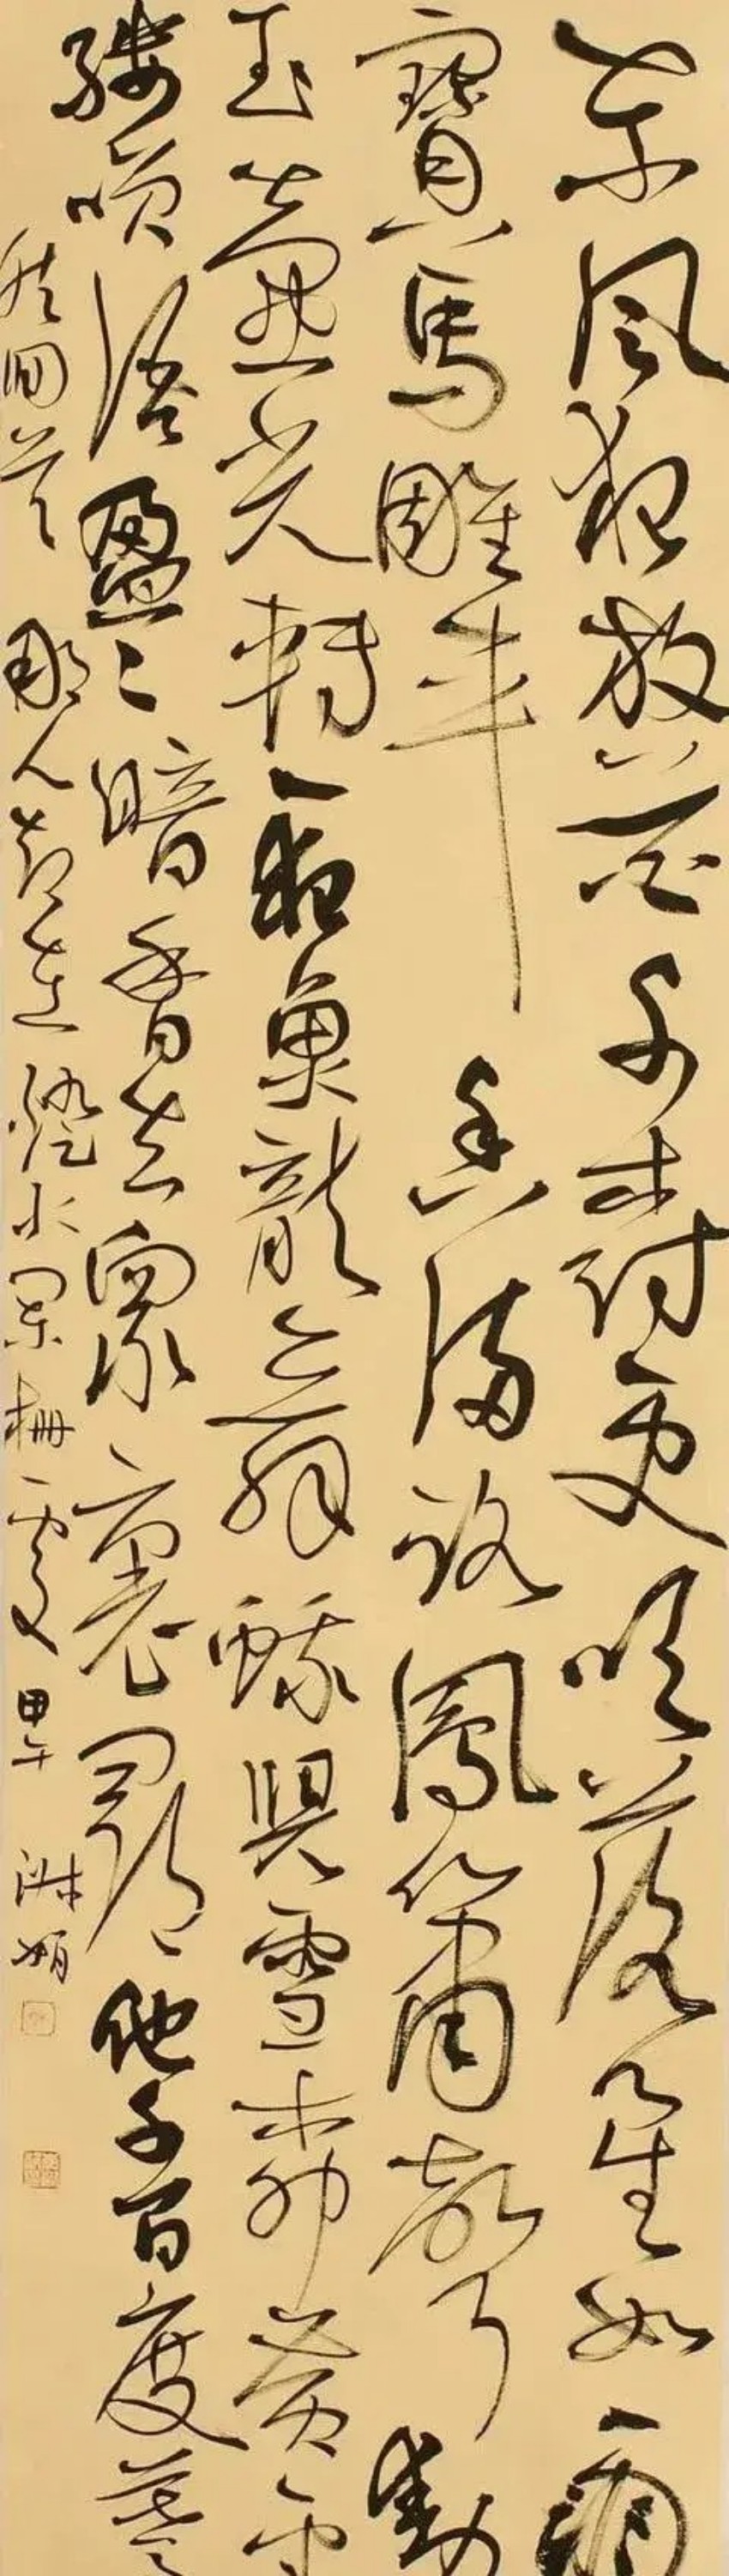 東風夜放花千樹更吹落星如雨
寶馬雕車香滿路鳳簫聲動
玉壺光轉一夜魚龍舞蛾兒雪柳黃金
縷咲語盈〻暗香去眾裏尋他千百度驀
然回首那人却在燈火闌珊處 甲午